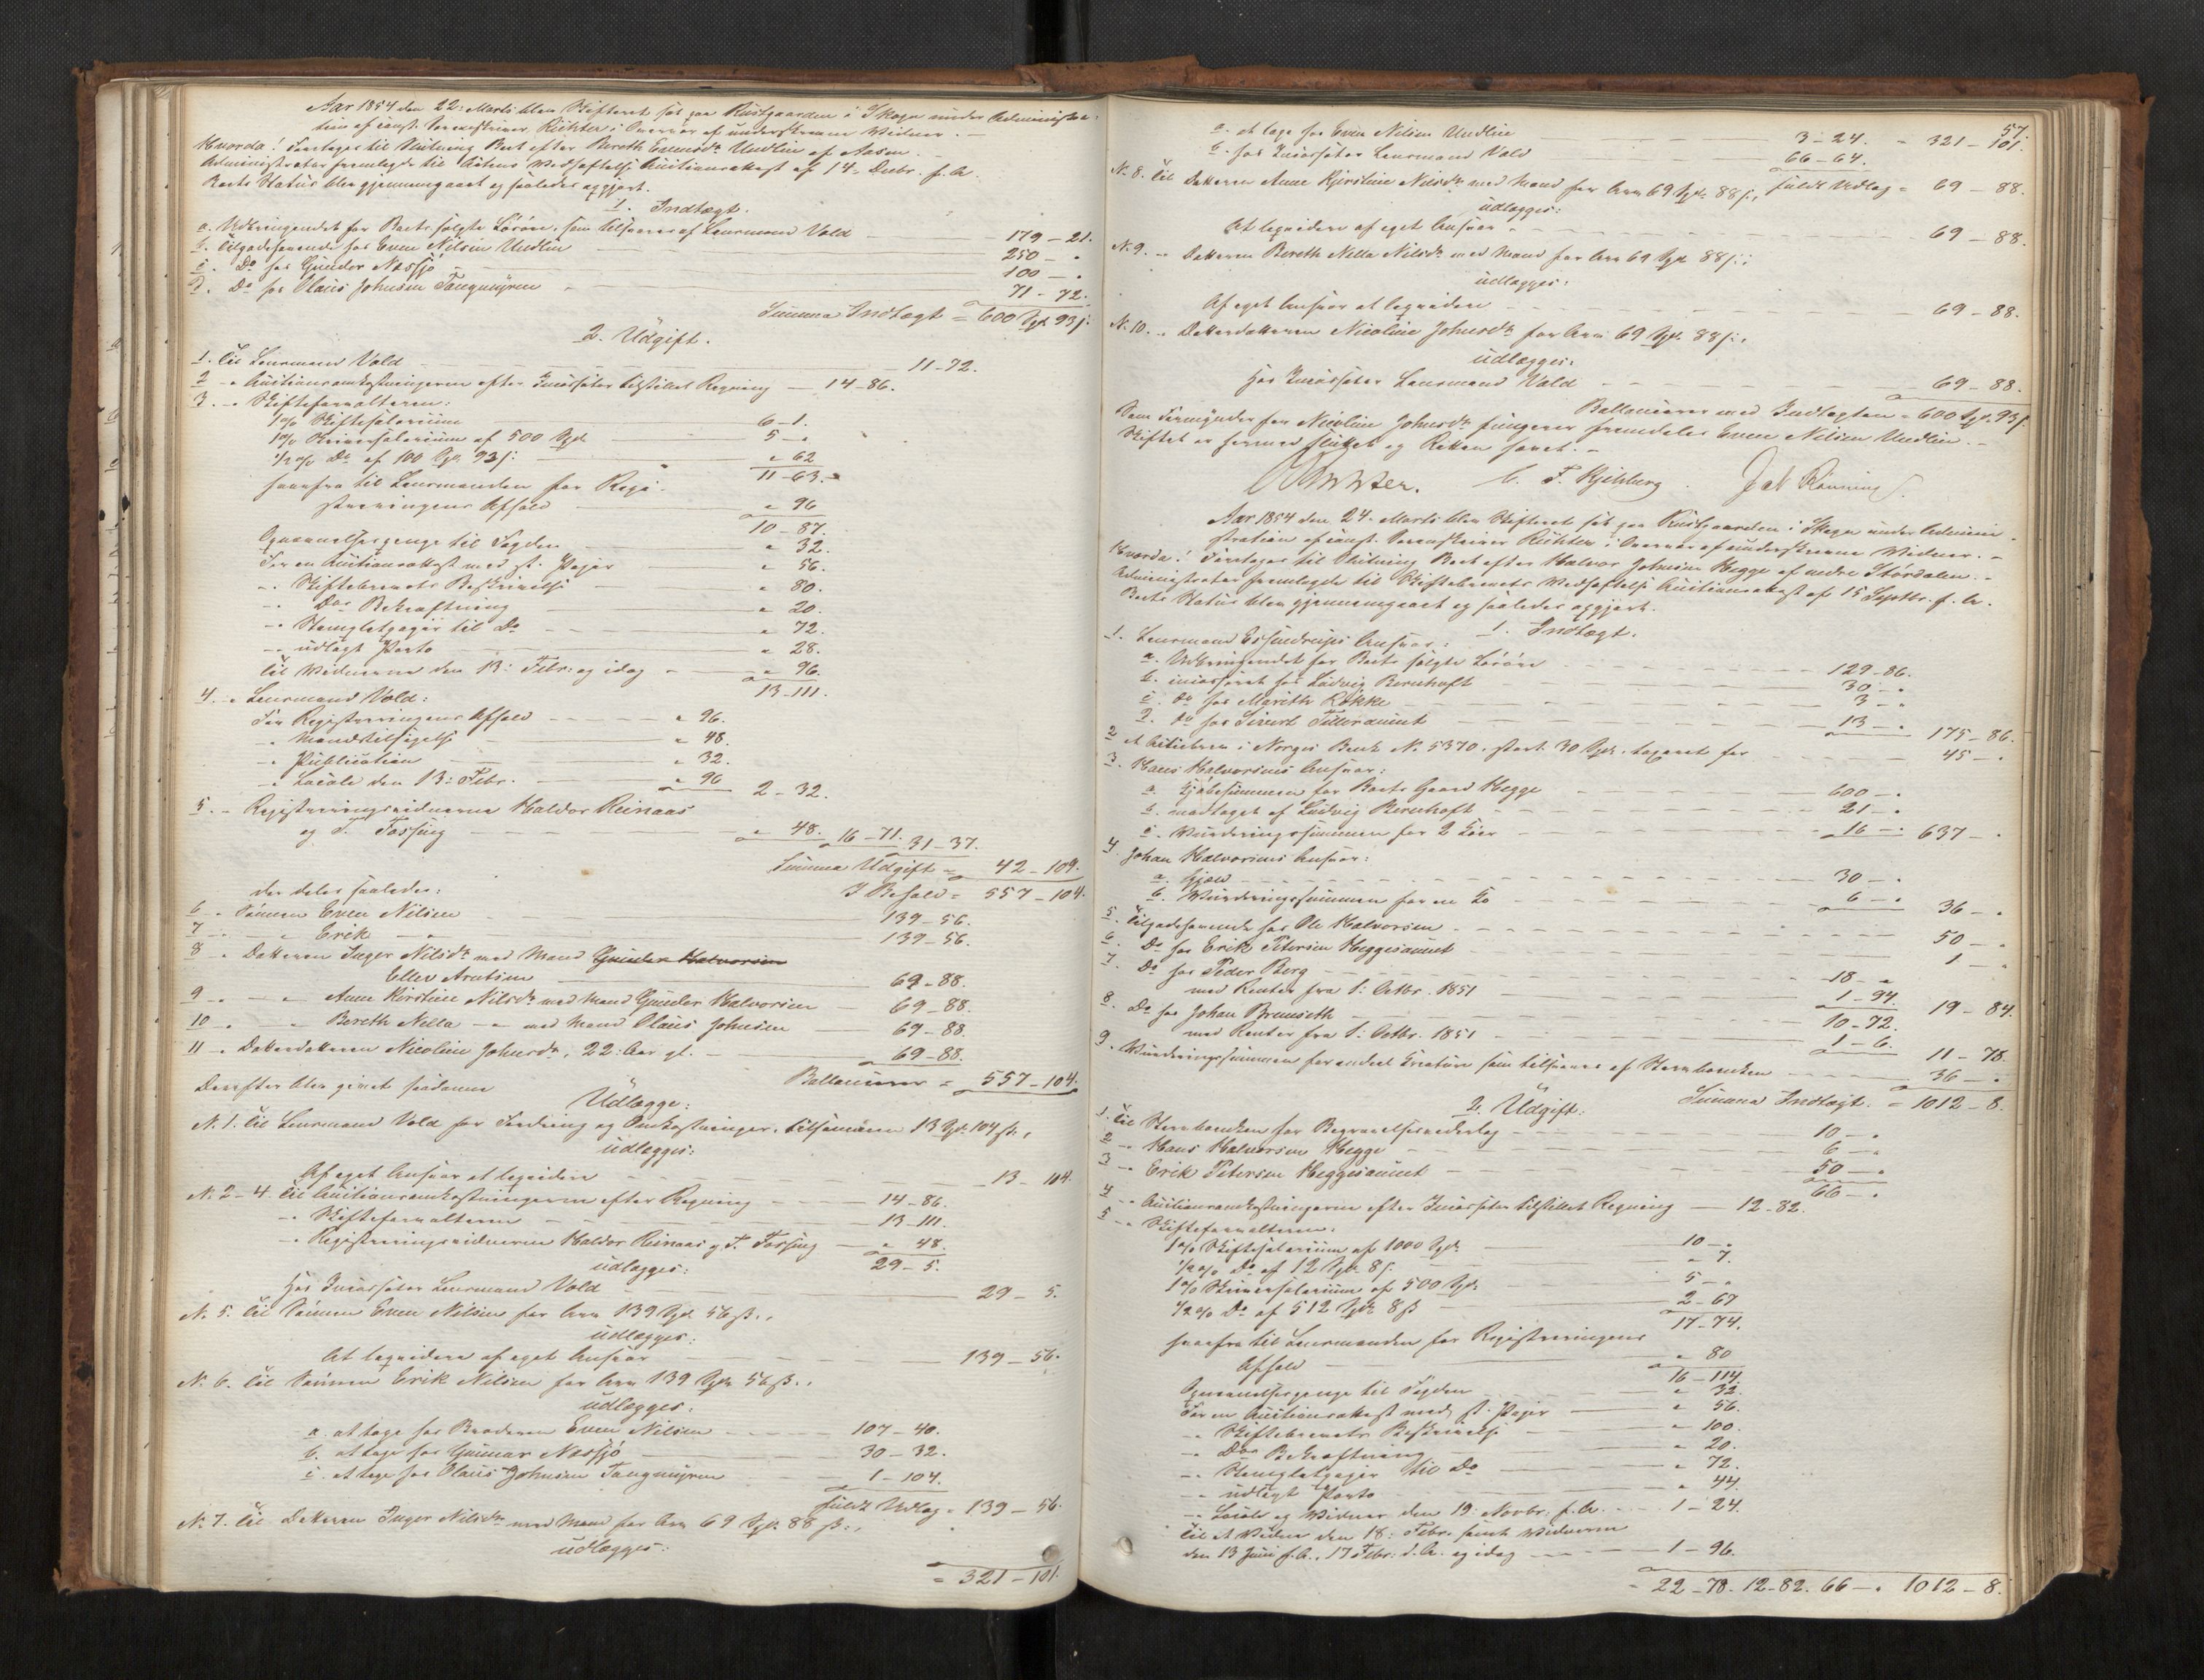 Aar 1854 den 22: Marts blev Skifteret sat paa Rustgaarden i Skogn under Administra-
tion af const. Sorenskriver Richter i Overvær af underskrevne Vidner. –
Hvorda! Foretoges til Slutning Boet efter Bereth Evensdr Undlin af Aasen. –
Administrator fremlagde til Actens Vedhæftelse Auctionsattest af 14. Decbr. f. A.
Boets Status blev gjennemgaaet og saaledes opgjort.
1. Indtægt.
a. Udbringendet for Boets solgte Løsøre, som tilsvares af Lensmand Vold – 179 – 21.
b. Tilgodehavende hos Even Nilsen Undlin – 250 – "
c. Do hos Gunder Næssjø – 100 – "
d. Do hos Olaus Johnsen Tangmyren – 71 – 72.
Summa Indtægt = 600 Spd. 93 s.
2. Udgift.
1. Til Lensmand Vold – 11 – 72.
2 – " Auctionsomkostningerne efter Incassator tilstillet Regning – 14 – 86.
3. – " Skifteforvalteren:
1 % Skiftesalarium – 6 – 1.
1 % Skriversalarium af 500 Spd – 5 – "
1/2 % Do af 100 Spd. 93 s: – " 62
11 – 63. –
herfra til Lensmanden for Regi-
streringens Afhold – " 96
10 – 87.
Opnævnelsespenge til Fogden – " 32.
For en Auctionsattest med st. Papir – " 56.
– " Skiftebrevets Beskrivelse – " 80.
– " Dos Bekræftning – " 20.
– " Stemplet papir til Do – " 72.
– " udlagt Porto – " 28.
til Vidnerne den 13: Febr. og idag – " 96.
13 – 111.
4. – " Lensmand Vold:
For Registreringens Afhold – " 96.
– " Mandstilsigelse – " 48.
– " Publication – " 32.
– " Locale den 13: Febr. – " 96
2 – 32.
5. – Registreringsvidnerne Haldor Reinaas
og T. Fossing – " 48. 16 – 71. 31 – 37.
Summa Udgift – 42 – 109.
I Behold = 557 – 104.
der deles saaledes:
6 – Sønnen Even Nilsen 139 – 56.
7 – " – " Erik – " – 139 – 56.
8 – " Datteren Inger Nilsdr med Mand Gunder Halvorsen
Ellev Arntsen – 69 – 88.
9 – " – " Anne Kirstine Nilsdr med Mand Gunder Halvorsen – 69 – 88.
10 – " Bereth Nella – " – med Mand Olaus Johnsen – 69 – 88
11 – " Datterdatteren Nicoline Johnsdr, 22: Aar gl. – 69 – 88.
Ballancerer = 557 – 104.
Derefter blev givet saadanne
Udlægge:
No 1. til Lensmand Vold for Fordring og Omkostninger, tilsammen 13 Spd. 104 s.,
udlægges:
Af eget Ansvar at liqvidere – 13 – 104.
No 2 – 4. til Auctionsomkostningerne efter Regning – 14 – 86.
– " Skifteforvalteren – 13 – 111.
– " Registreringsvidnerne Haldor Reinaas og T. Fossing – " 48.
udlægges: 29 – 5.
Hos Incassator Lensmand Vold – 29 – 5.
No 5. til Sønnen Even Nilsen for Arv 139 Spd 56 s.,
udlægges:
At liqvidere af eget Ansvar – 139 – 56.
No 6. til Sønnen Erik Nilsen for Arv 139 Spd 56 s.,
udlægges:
a. at tage hos Broderen Even Nilsen – 107 – 40.
b. at tage hos Gunnar Næssjø – 30 – 32.
c. at tage hos Olaus Johnsen Tangmyren – 1 – 104.
fuldt Udlæg = 139 – 56.
No 7. til Datteren Inger Nilsdr med Mand for Arv 69 Spd. 88 s.,
udlægges:
= 321 – 101.
57.
a. at tage hos Even Nilsen Undlin – 3 – 24. = 321 – 101.
b. hos Incassator Lensmand Vold – 66 – 64.
fuldt Udlæg = 69 – 88.
No 8. til Datteren Anne Kjirstine Nilsdr med Mand for Arv 69 Spd. 88 s.,
udlægges:
At liqvidere af eget Ansvar – 69 – 88.
No 9. – " Datteren Bereth Nella Nilsdr med Mand for Arv 69 Spd 88 s.;
udlægges:
Af eget Ansvar at liqvidere – 69 – 88.
No 10. – " Datterdatteren Nicoline Johnsdr for Arv 69 Spd. 88 s.,
udlægges:
Hos Incassator Lensmand Vold – 69 – 88.
Ballancerer med Indtægten = 600 Spd. 93 s.
Som Formynder for Nicoline Johnsdr fungerer fremdeles Even Nilsen Undlin. –
Skiftet er hermed sluttet og Retten hævet. –
Richter. C. F. Kjelberg. Jak Rönning.
Aar 1854 den 24. Marts blev Skifteret sat paa Rustgaarden i Skogn under Admini-
stration af const. Sorenskriver Richter i Overvær af underskrevne Vidner. –
Hvorda! Foretoges til Slutning Boet efter Halvor Johnsen Hegge af nedre Stördalen. –
Administrator fremlagde til Skiftebrevets Vedhæftelse Auctionsattest af 15 Septbr. f. A.
Boets Status blev gjennemgaaet og saaledes opgjort.
1. Indtægt.
1. Lensmand Essendrups Ansvar:
a. Udbringendet for Boets solgte Løsøre – 129 – 86.
b. incasseret hos Ludvig Bernhoft – 30 – "
c. do hos Marith Røkke – 3 – "
d. do hos Sivert Tilleraunet – 13 – " 175 – 86.
2 et Actiebrev i Norges Bank No 5370. stort 30 Spd. taxeret for – 45 – "
3. Hans Halvorsens Ansvar:
a. Kjøbesummen for Boets Gaard Hegge – 600 – "
b. modtaget af Ludvig Bernhoft – 21 – "
c. Vurderingssummen for 2 Køer – 16 – " 637 – "
4. Johan Halvorsens Ansvar:
a. Gjæld – 30 – "
b. Vurderingssummen for en Ko – 6 – " 36 – "
5. Tilgodehavende hos Ole Halvorsen – 50 – "
6. Do hos Erik Petersen Heggesaunet – 1 – "
7. Do hos Peder Berg – 18 – "
med Renter fra 1: Octbr. 1851 – 1 – 94. 19 – 84.
8. Do hos Johan Brunseth – 10 – 72.
med Renter fra 1: Octbr. 1851 – 1 – 6. 11 – 78.
9. Vurderingssummen for endeel Creature som tilsvares af Stervboenken – 36 – "
Summa Indtægt. = 1012 – 8.
2. Udgift:
1. Til Stervboenken for Begravelsesvederlag – 10 – "
2 – " Hans Halvorsen Hegge – 6 – "
3 – " Erik Petersen Heggesaunet – 50 – "
66 – "
4 – " Auctionsomkostningerne efter Incassator tilstillet Regning – 12 – 82.
5 – " Skifteforvalteren:
1 % Skiftesalarium af 1000 Spd. – 10 – "
1/2 % Do af 12 Spd. 8 s. – " 7.
1 % Skriversalarium af 500 Spd – 5 – "
1/2 % Do af 512 Spd 8 s – 2 – 67
17 – 74.
herfra til Lensmanden for Registreringens
Afhold – " 80
16 – 114.
Opnævnelsespenge til Fogden – " 32.
For en Auctionsattest med st. Papir – " 56.
– " Skiftebrevets Beskrivelse – " 100.
– " Dos Bekræftning – " 20.
– " Stemplet papir til Do – " 72.
– " udlagt Porto – " 44.
– " Locale og Vidner den 19: Novbr. f. A. – 1 – 24.
til et Vidne den 18: Febr. samt Vidnerne
den 13 Juni f. A., 17 Febr. d. A. og idag – 1 – 96.
= 22 – 78. 12 – 82. 66 – " 1012 – 8.